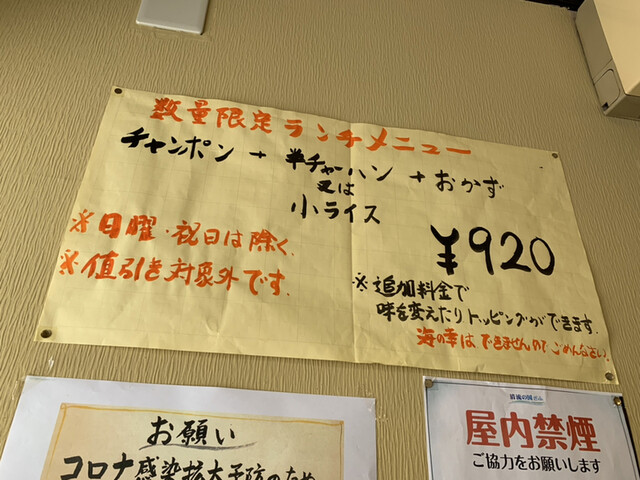 数量限定ランチメニュー
チャンポン + 半チャーハン + おかず
又は
小ライス
¥920
※日曜・祝日は除く。
※値引き対象外です。
※追加料金で
味を変えたりトッピングができます。
海の幸はできませんのでごめんなさい。
お願い
コロナ感染拡大予防のため
屋内禁煙
ご協力をお願いします